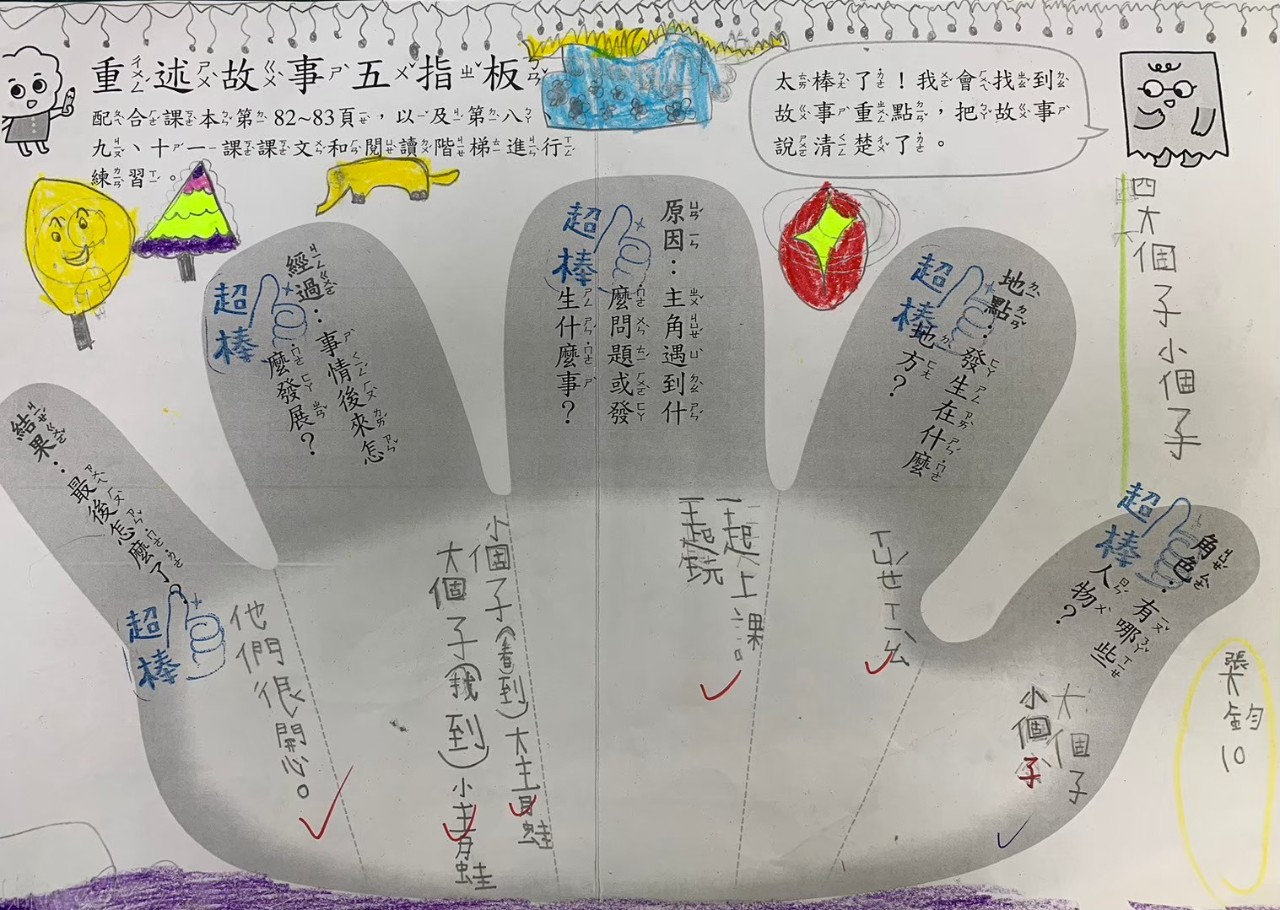 重述故事五指板
配合課本第82~83頁，以及第八、
九、十一課課文和閱讀階梯進行
練習。
太棒了！我會找到
故事重點，把故事
說清楚了。
四大個子小個子
張鈞
10
角色：有哪些
人物？
超棒
大個子
小個子
地點：發生在什麼
地方？
超棒
ㄒㄩㄝˊㄒㄧㄠˋ
原因：主角遇到什
麼問題或發
生什麼事？
超棒
一起上課。
一起玩
經過：事情後來怎
麼發展？
超棒
小個子(看到)大青蛙
大個子(找到)小青蛙
結果：最後怎麼了。
超棒
他們很開心。